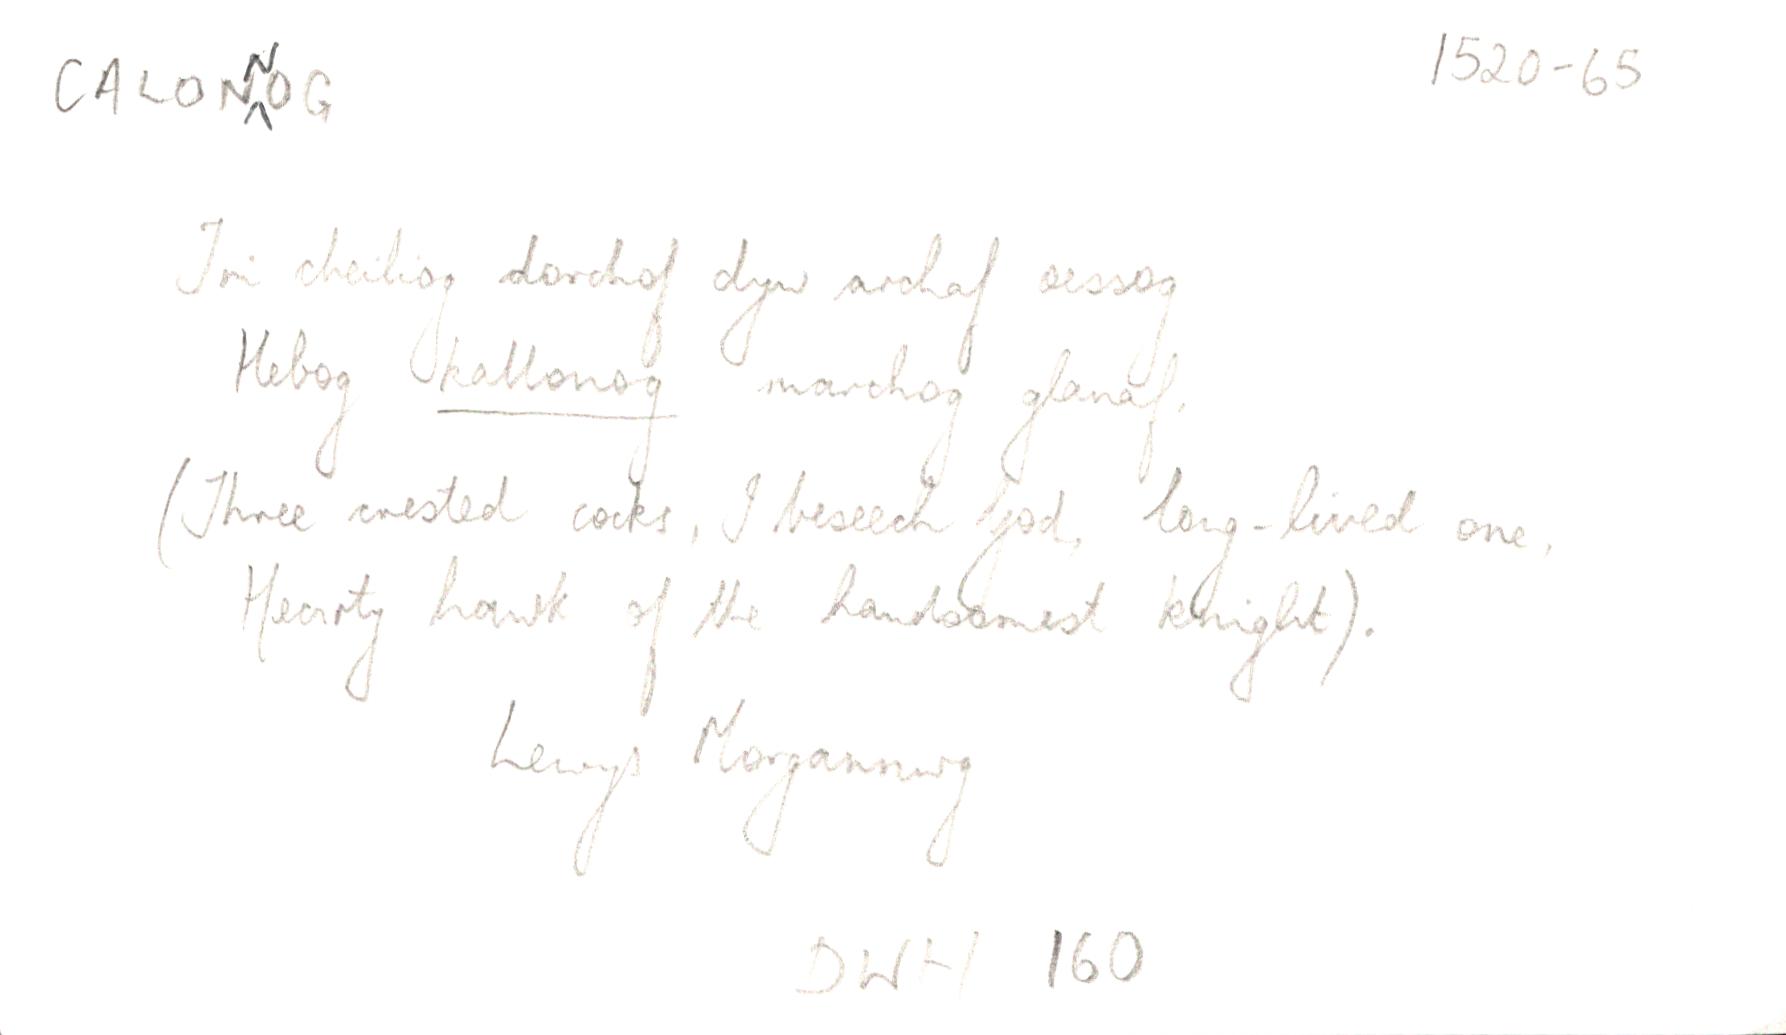 CALONNOG 1520-65
Tri cheiliog dorchof dyw archaf oessog
Hebog kallonog marchog glanaf.
(Three crested cocks, I beseech God, long-lived one,
Hearty hawk of the handsomest knight).
Lewys Morgannwg
DWH 160